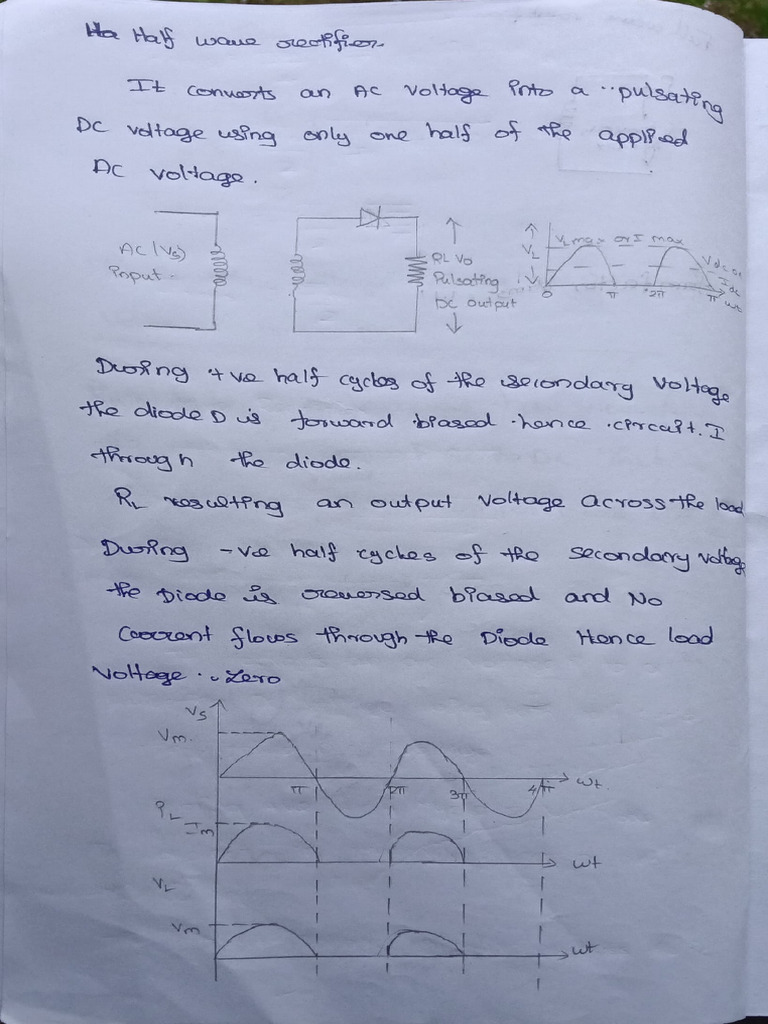 Half wave rectifier
It converts an AC voltage into a pulsating
DC voltage using only one half of the applied
AC voltage.
AC (Vs)
input
RL Vo
Pulsating
DC output
VL
VL max or I max
Vdc or
Idc
0 π 2π π wt
During +ve half cycles of the secondary voltage
the diode D is forward biased hence circuit. I
through the diode.
RL resulting an output voltage across the load
During -ve half cycles of the secondary voltage
the Diode is reversed biased and No
Coorrent flows through the Diode Hence load
voltage Zero
Vs
Vm
π 2π 3π 4π wt
Im
wt
VL
Vm
wt